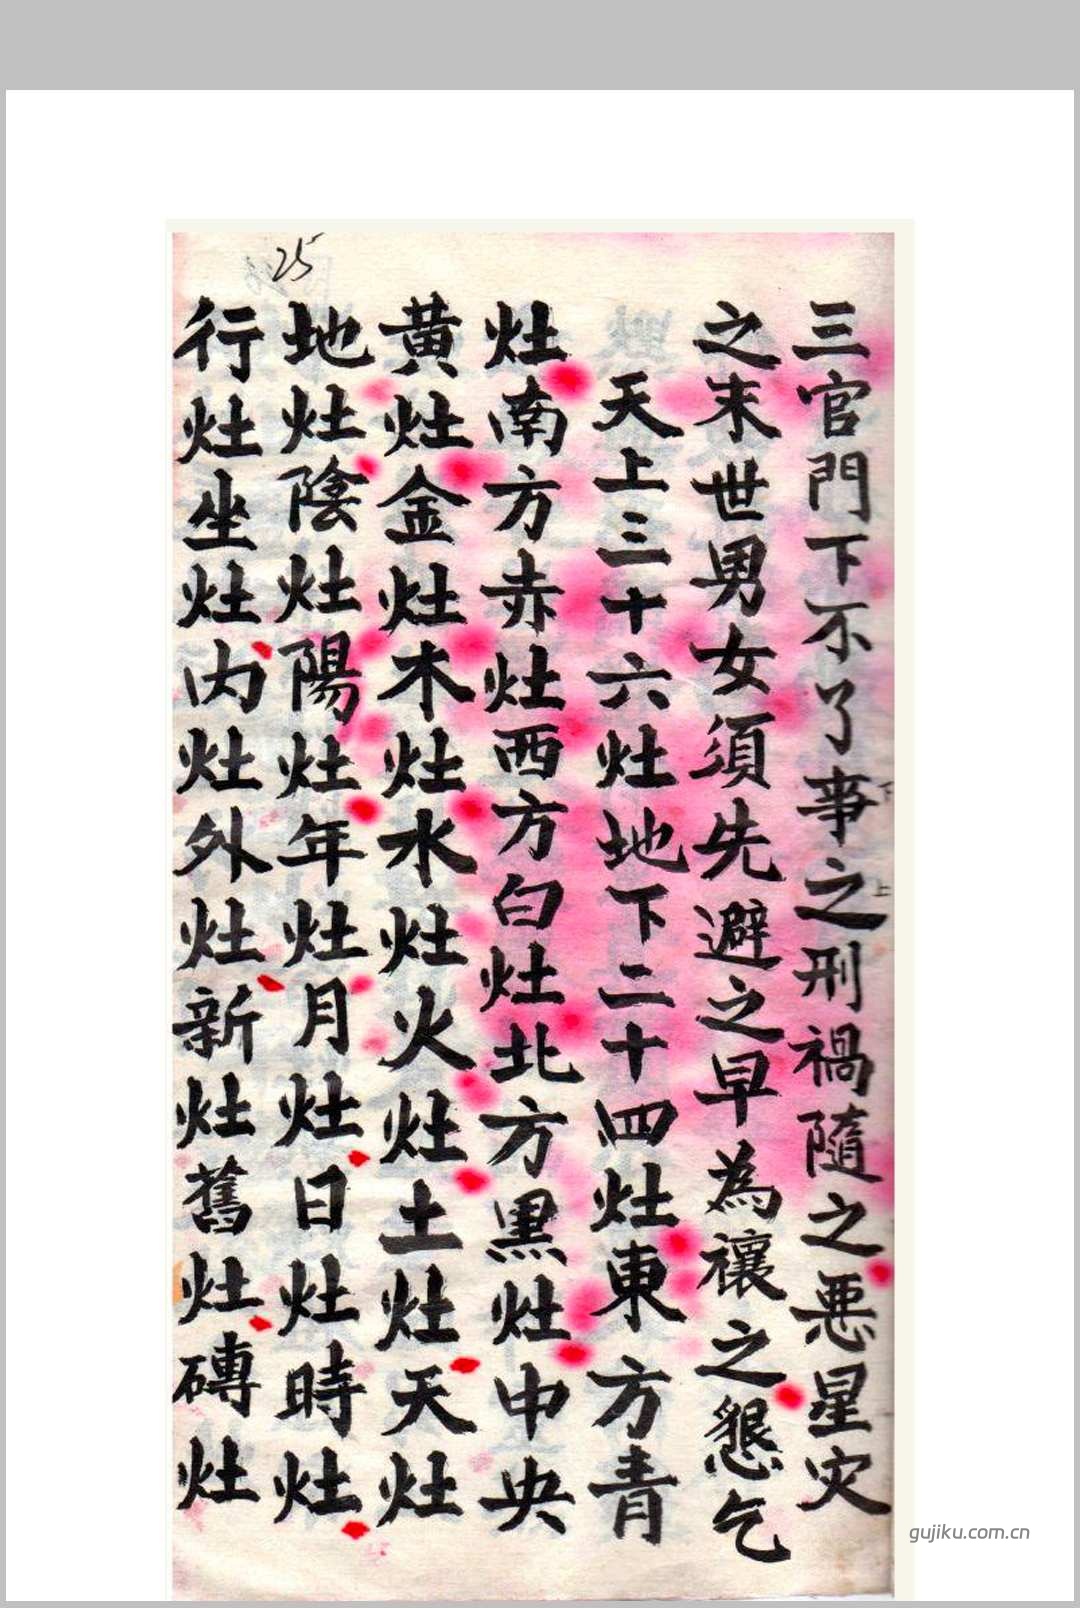 25
三官門下不了事之刑禍隨之悪星灾
下
上
之末世男女須先避之早為禳之懇乞
天上三十六灶地下二十四灶東方青
灶南方赤灶西方白灶北方黑灶中央
黃灶金灶木灶水灶火灶土灶天灶
地灶陰灶陽灶年灶月灶日灶時灶
行灶坐灶内灶外灶新灶舊灶磚灶
gujiku.com.cn